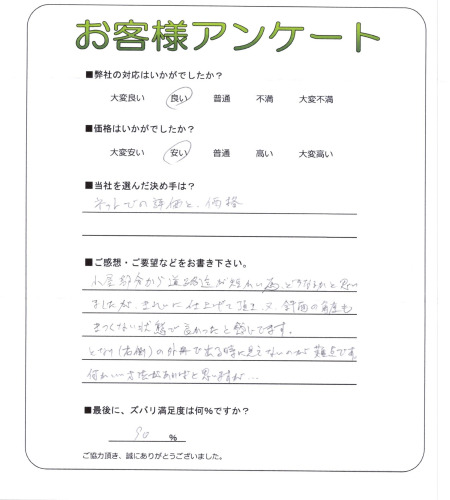 お客様アンケート
■弊社の対応はいかがでしたか？
大変良い 良い 普通 不満 大変不満
■価格はいかがでしたか？
大変安い 安い 普通 高い 大変高い
■当社を選んだ決め手は？
ネットでの評価と、価格
■ご感想・ご要望などをお書き下さい。
小屋部分から道路迄が短い為、どうなるかと思い
ましたが、きれいに仕上げて頂き、又、斜面の角度も
きつくない状態で良かったと感じてます。
となり(右側)の外車で出る時に見えないのが難点です。
何かいい方法があればと思いますが…
■最後に、ズバリ満足度は何%ですか？
90 %
ご協力頂き、誠にありがとうございました。